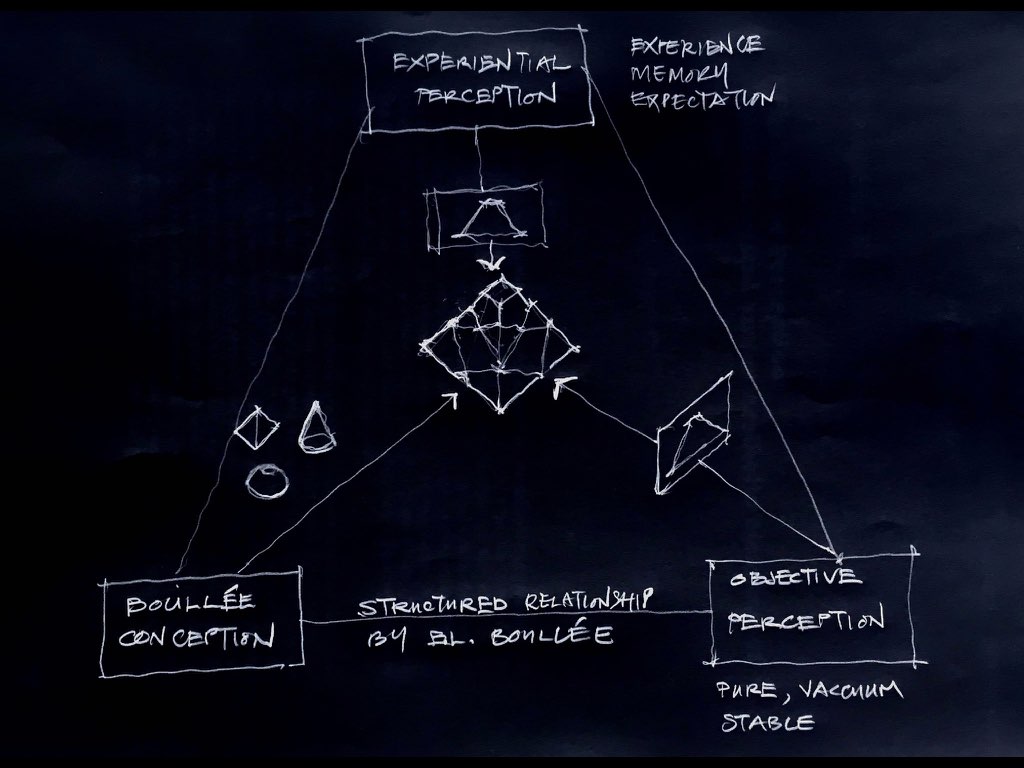 EXPERIENTIAL
PERCEPTION
EXPERIENCE
MEMORY
EXPECTATION
BOULLÉE
CONCEPTION
STRUCTURED RELATIONSHIP
BY EL. BOULLÉE
OBJECTIVE
PERCEPTION
PURE, VACUUM
STABLE